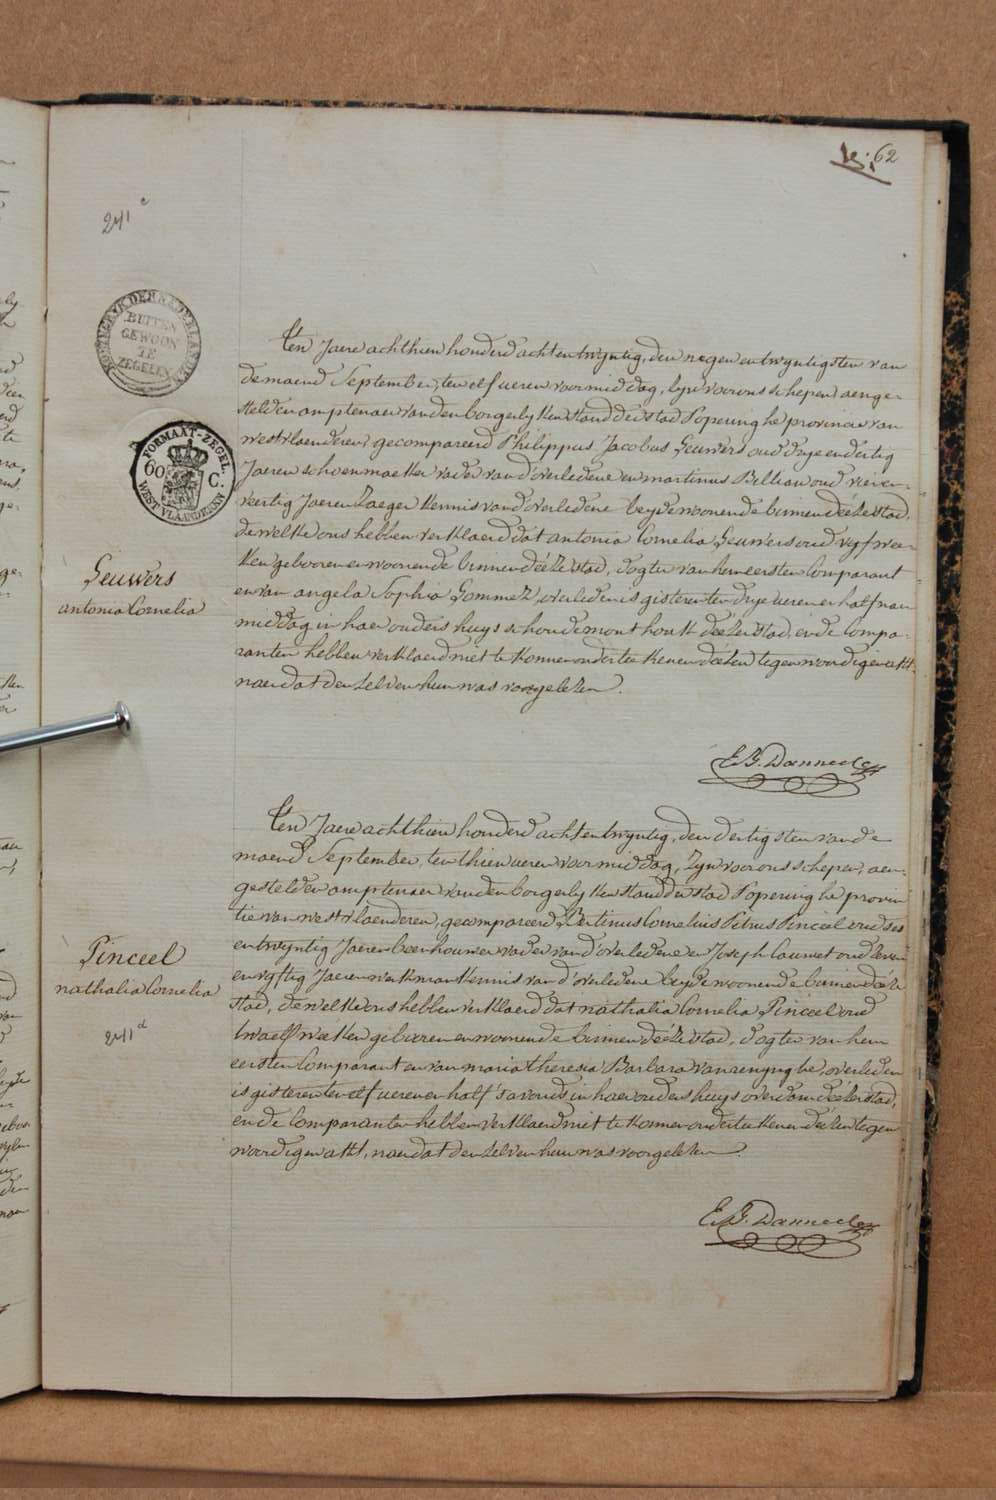 62
241
KONINGRYK DER NEDERLANDEN
BUITEN
GEWOON
TE
ZEGELEN
FORMAAT-ZEGEL.
60 C.
WEST VLAANDEREN
Ten Jaere achthien honderd achtentwyntig, den negenentwyntigsten van
de maend September, ten elf ueren voormiddag, zyn voor ons schepen aenge-
stelden amptenaer van den borgerlyken stand der stad Poperinghe provincie van
westvlaenderen gecompareerd Philippus Jacobus Geuwers oud dryendertig
Jaeren schoenmaeker vader vand'overledene en martinus Billiau oud vieren-
veertig Jaeren Zaeger kennis vand'overledene beyde woonende binnen déeze stad,
de welke ons hebben verklaerd dat antonia Cornelia Geuwers oud vyf wee-
ken gebooren en woonende binnen déeze stad, dogter van hem eersten Comparant
en van angela Sophia Gommez, overleden is gisteren ten drye ueren en half naer
middag in haer ouders huys schoudemont houk déezer stad, en de Compa-
ranten hebben verklaerd niet te konnen onderteekenen déezen tegenwoordigen akt,
naer dat den zelven hun was voorgelezen.
Geuwers
antonia Cornelia
E. B. Danneel
Ten Jaere achthien honderd achtentwyntig, den dertigsten van de
maend September, ten thien ueren voormiddag, zyn voor ons schepen, aen-
gestelden amptenaer van den borgerlyken stand der stad Poperinghe provin
tie van westvlaenderen, gecompareerd Bertinus Cornelius Petrus Pinceel oud ses
entwyntig Jaeren beenhouwer vader vand'overledene en Joseph Cauwet oud seven
en vyftig Jaeren werkman kennis van d'overledene beyde woonende binnen déeze
stad, de welke ons hebben verklaerd dat nathalia Cornelia Pinceel oud
twaelf weeken gebooren en woonende binnen déeze stad, dogter van hem
eersten Comparant en van maria theresia Barbara vanrenynghe, overleden
is gisteren ten elf ueren en half 's avonds in haer ouders huys overdam déezer stad,
en de Comparanten hebben verklaerd niet te konnen onderteekenen déezen tegen
woordigen akt, naer dat den zelven hun was voorgelezen.
Pinceel
nathalia Cornelia
241
E. B. Danneel